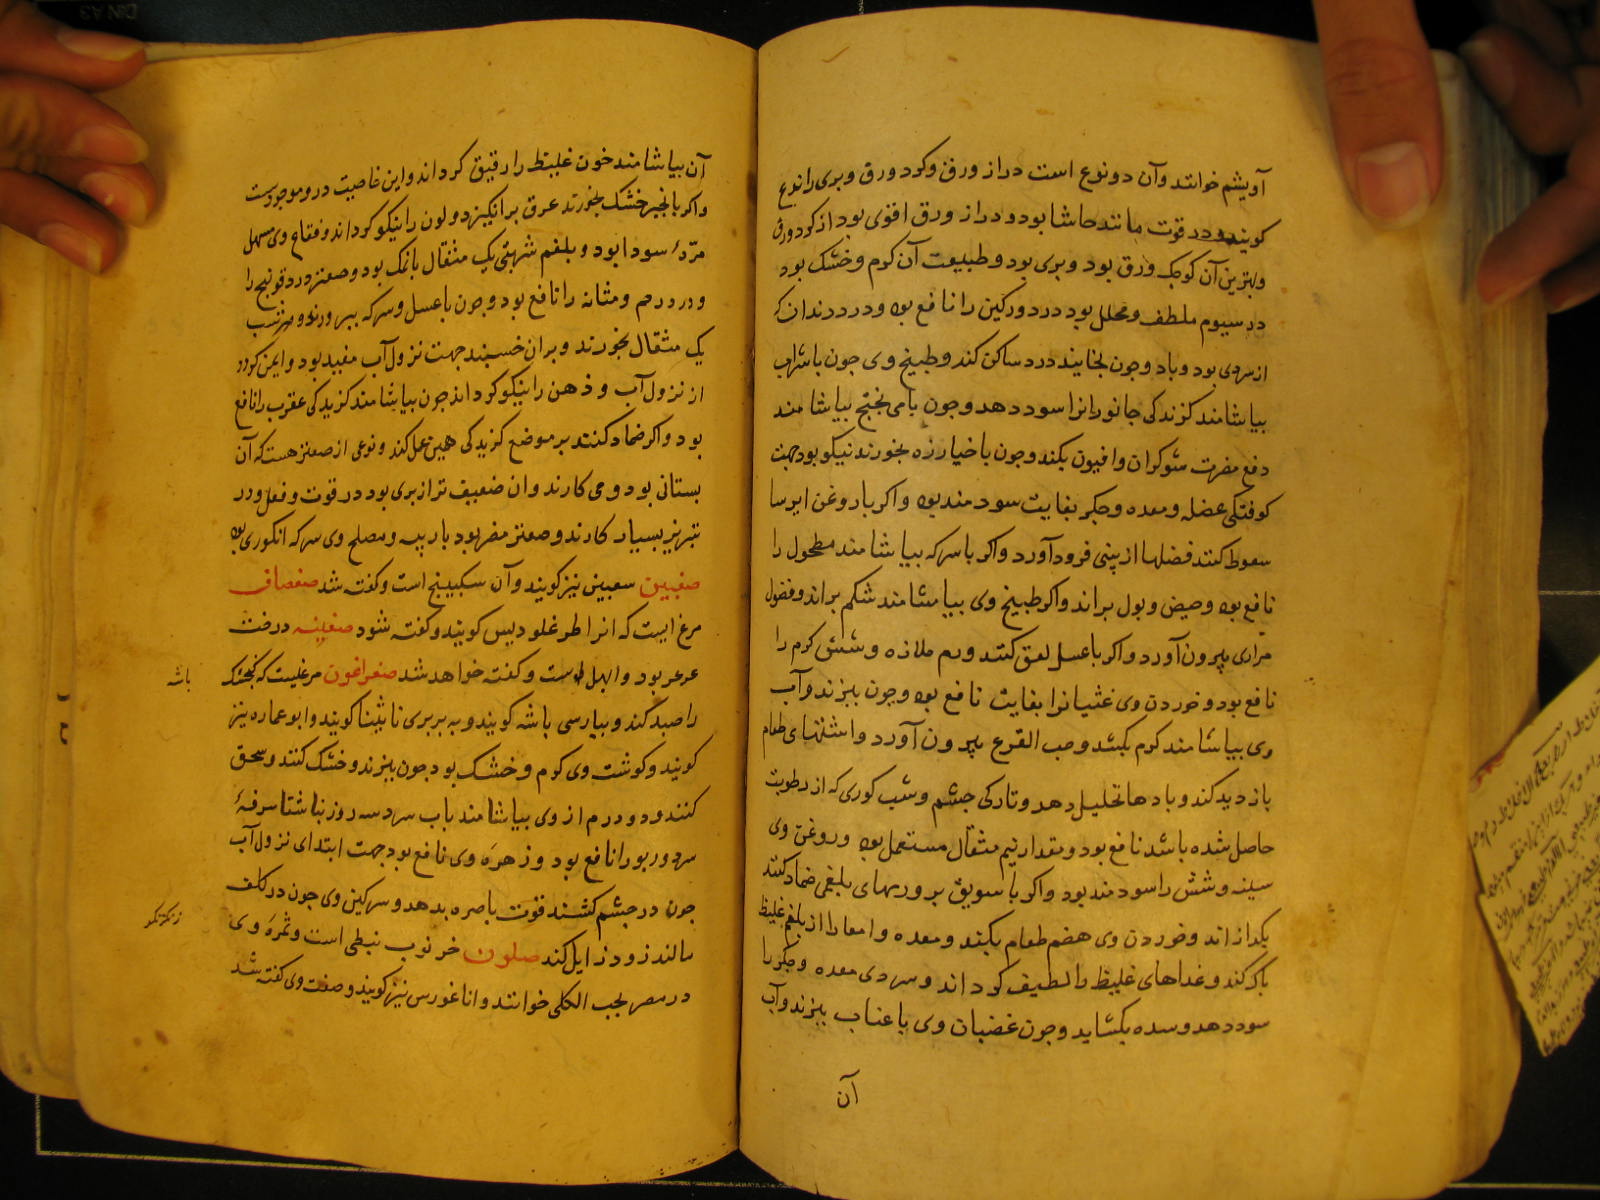 آویشم خوانند وآن دو نوع است دراز ورق وکرد ورق وبری را نوع
کویند ودر قوت مانند حاشا بود ودراز ورق اقوی بود از کرد ورق
وبهترین آن کوچک ورق بود وبری بود وطبیعت آن کرم وخشک بود
در سیوم ملطف ومحلل بود درد ورکین را نافع بود ودرد دندان که
از سردی بود وباد وچون بخایند درد ساکن کند وطبیخ وی چون باشراب
بیاشامند کزندکی جانورانرا سود دهد وچون بامی بختج بیاشامند
دفع مضرت شوکران وافیون بکند وچون با خیارزه بخورند نیکو بود جهت
کوفتکی عضله ومعده وجکر بغایت سودمند بود واکر با روغن ایرسا
سعوط کنند فضلها از بینی فرود آورد واکر باسرکه بیاشامند مطحول را
نافع بود وحیض وبول براند واکر طبیخ وی بیاشامند شکم براند وفضول
مراری بیرون آورد واکر باعسل لعق کنند ورم ملازه وشش کرم را
نافع بود وخوردن وی غثیانرا بغایت نافع بود وچون بپزند وآب
وی بیاشامند کرم بکشد وحب القرع بیرون آورد واشتهای طعام
بازدید کند وبادها تحلیل دهد وتارکی چشم وشب کوری که از رطوبت
حاصل شده باشد نافع بود ومقدار نیم مثقال مستعمل بود وروغن وی
سینه وشش را سودمند بود واکر با سویق بر ورمهای بلغمی ضماد کنند
بکدازاند وخوردن وی هضم طعام بکند ومعده وامعا را از بلغم غلیظ
پاک کند وغذاهای غلیظ را لطیف کرداند وسردی معده وجکر را
سود دهد وسده بکشاید وچون غضبان وی با عناب بپزند وآب
آن
آن بیاشامند خون غلیظ را رقیق کرداند واین خاصیت درو موجودست
واکر با انجیر خشک بخورند عرق برانکیزد ولون را نیکو کرداند وفقاح وی مسهل
مرّهٔ سودا بود وبلغم شربتی یک مثقال بانمک بود وصعتر درد قولنج را
ودرد رحم ومثانه را نافع بود وچون باعسل وسرکه بپرورند وهر شب
یک مثقال بخورند وبران خسبند جهت نزول آب مفید بود وایمن کردد
از نزول آب وذهن را نیکو کرداند چون بیاشامند کزیدکی عقرب را نافع
بود واکر ضماد کنند بر موضع کزیدکی همین عمل کند ونوعی از صعتر هست که آن
بستانی بود ومی کارند وان ضعیف تر از بری بود در قوت وفعل ودر
تبریز بسیار کارند وصعتر مضر بود باریه ومصلح وی سرکه انکوری بود
صغبین سعبین نیز کویند وآن سکبینج است وکفته شد صفصاف
مرغ ایست که انرا طرغلودیس کویند وکفته شود صفینه درخت
عرعر بود وابهل است وکفته خواهد شد صفراغون مرغیست که کنجشک
را صید کند وبپارسی باشه کویند وبه بربری تابینا کویند وابو عماره نیز
کویند وکوشت وی کرم وخشک بود چون بپزند وخشک کنند وسحق
کنند ودو درم از وی بیاشامند باب سرد سه روز بناشتا سرفهٔ
سرد وربو را نافع بود وزهرهٔ وی نافع بود جهت ابتدای نزول آب
چون در چشم کشند قوت باصره بدهد وسرکین وی چون در کلف
مالند زود زایل کند صلون خرنوب نبطی است وثمرهٔ وی
در مصر بحب الکلی خوانند واناغورس نیز کویند وصفت وی کفته شد
باشه